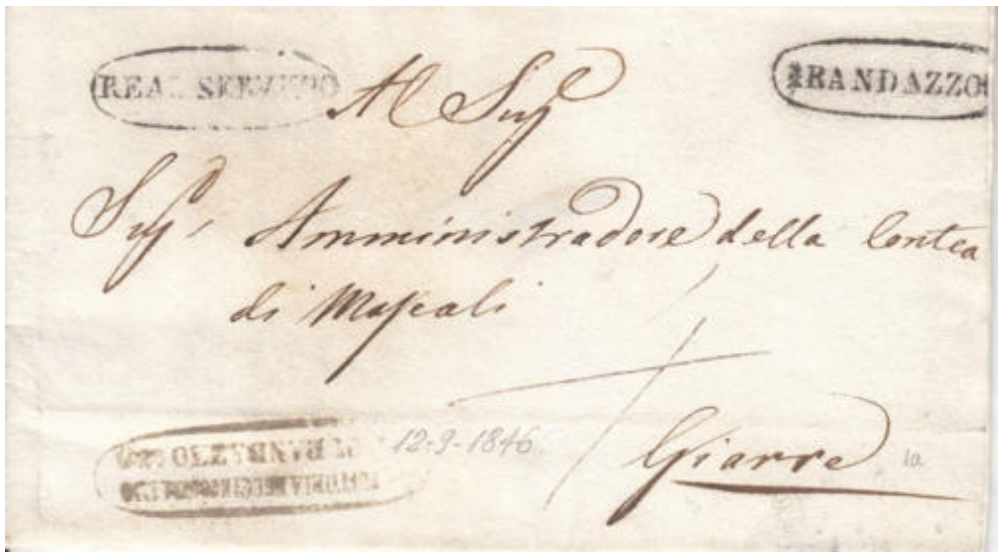 REAL SERVIZIO
RANDAZZO
Al Sigr
Sigr Amministradore della Contea
di Mascali
12-9-1846
Giarre
DI RANDAZZO